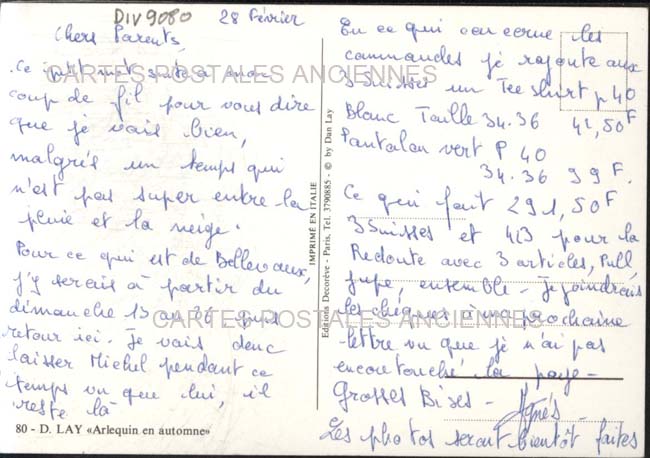 DIV9080
28 Février
Chers Parents,
Ce p'tit mot suite à mon
coup de fil pour vous dire
que je vais bien,
malgrés un temps qui
n'est pas super entre la
pluie et la neige.
Pour ce qui est de Bellevaux,
j'y serais à partir du
dimanche 13 au 26 puis
retour ici. Je vais donc
laisser Michel pendant ce
temps vu que lui, il
reste là
80 - D. LAY «Arlequin en automne»
IMPRIMÉ EN ITALIE
Editions Decorève - Paris, Tel. 3790885 - © by Dan Lay
En ce qui concerne les
commandes je rajoute aux
3 Suisses un Tee shirt p 40
Blanc Taille 34.36 42,50F
Pantalon vert P 40
34.36 99F.
Ce qui fait 291,50F
3 Suisses et 413 pour la
Redoute avec 3 articles, Pull,
jupe, ensemble. Je joindrais
les chèques à ma prochaine
lettre vu que je n'ai pas
encore touché la paye-
Grosses Bises - Agnés -
Les photos seront bientôt faites
CARTES POSTALES ANCIENNES
CARTES POSTALES ANCIENNES